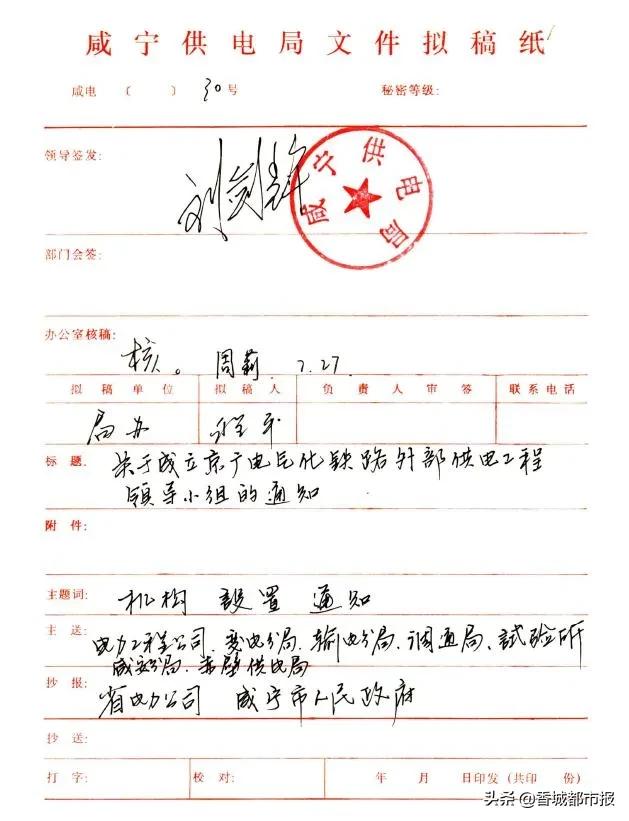 咸宁供电局文件拟稿纸
咸电 〔 〕 30号 秘密等级:
领导签发:
咸宁供电局
部门会签:
办公室核稿:
核。 周莉 7.27.
拟稿单位 拟稿人 负责人审签 联系电话
局办 程平
标题. 关于成立京广电气化铁路外部供电工程
领导小组的通知
附件:
主题词: 机构 设置 通知
主送: 电力工程公司、变电分局、输电分局、调通局、试验所
咸安分局、赤壁供电局
抄报: 省电力公司 咸宁市人民政府
抄送:
打字: 校对: 年 月 日印发(共印 份)
头条@香城都市报